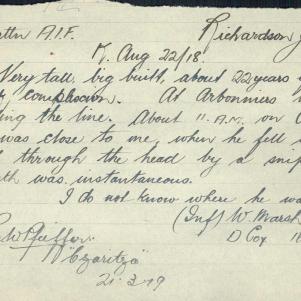 A.I.F. Richardson J
K. Aug 22/18.
Very tall, big built, about 22 years
complexion. At Arbonniers
ing the line. About 11 A.M. on
was close to me, when he fell
through the head by a snip
th was instantaneous.
I do not know where he wa
(Inf) W. Marsh
D Coy 18
"Czaritza"
21-3-19